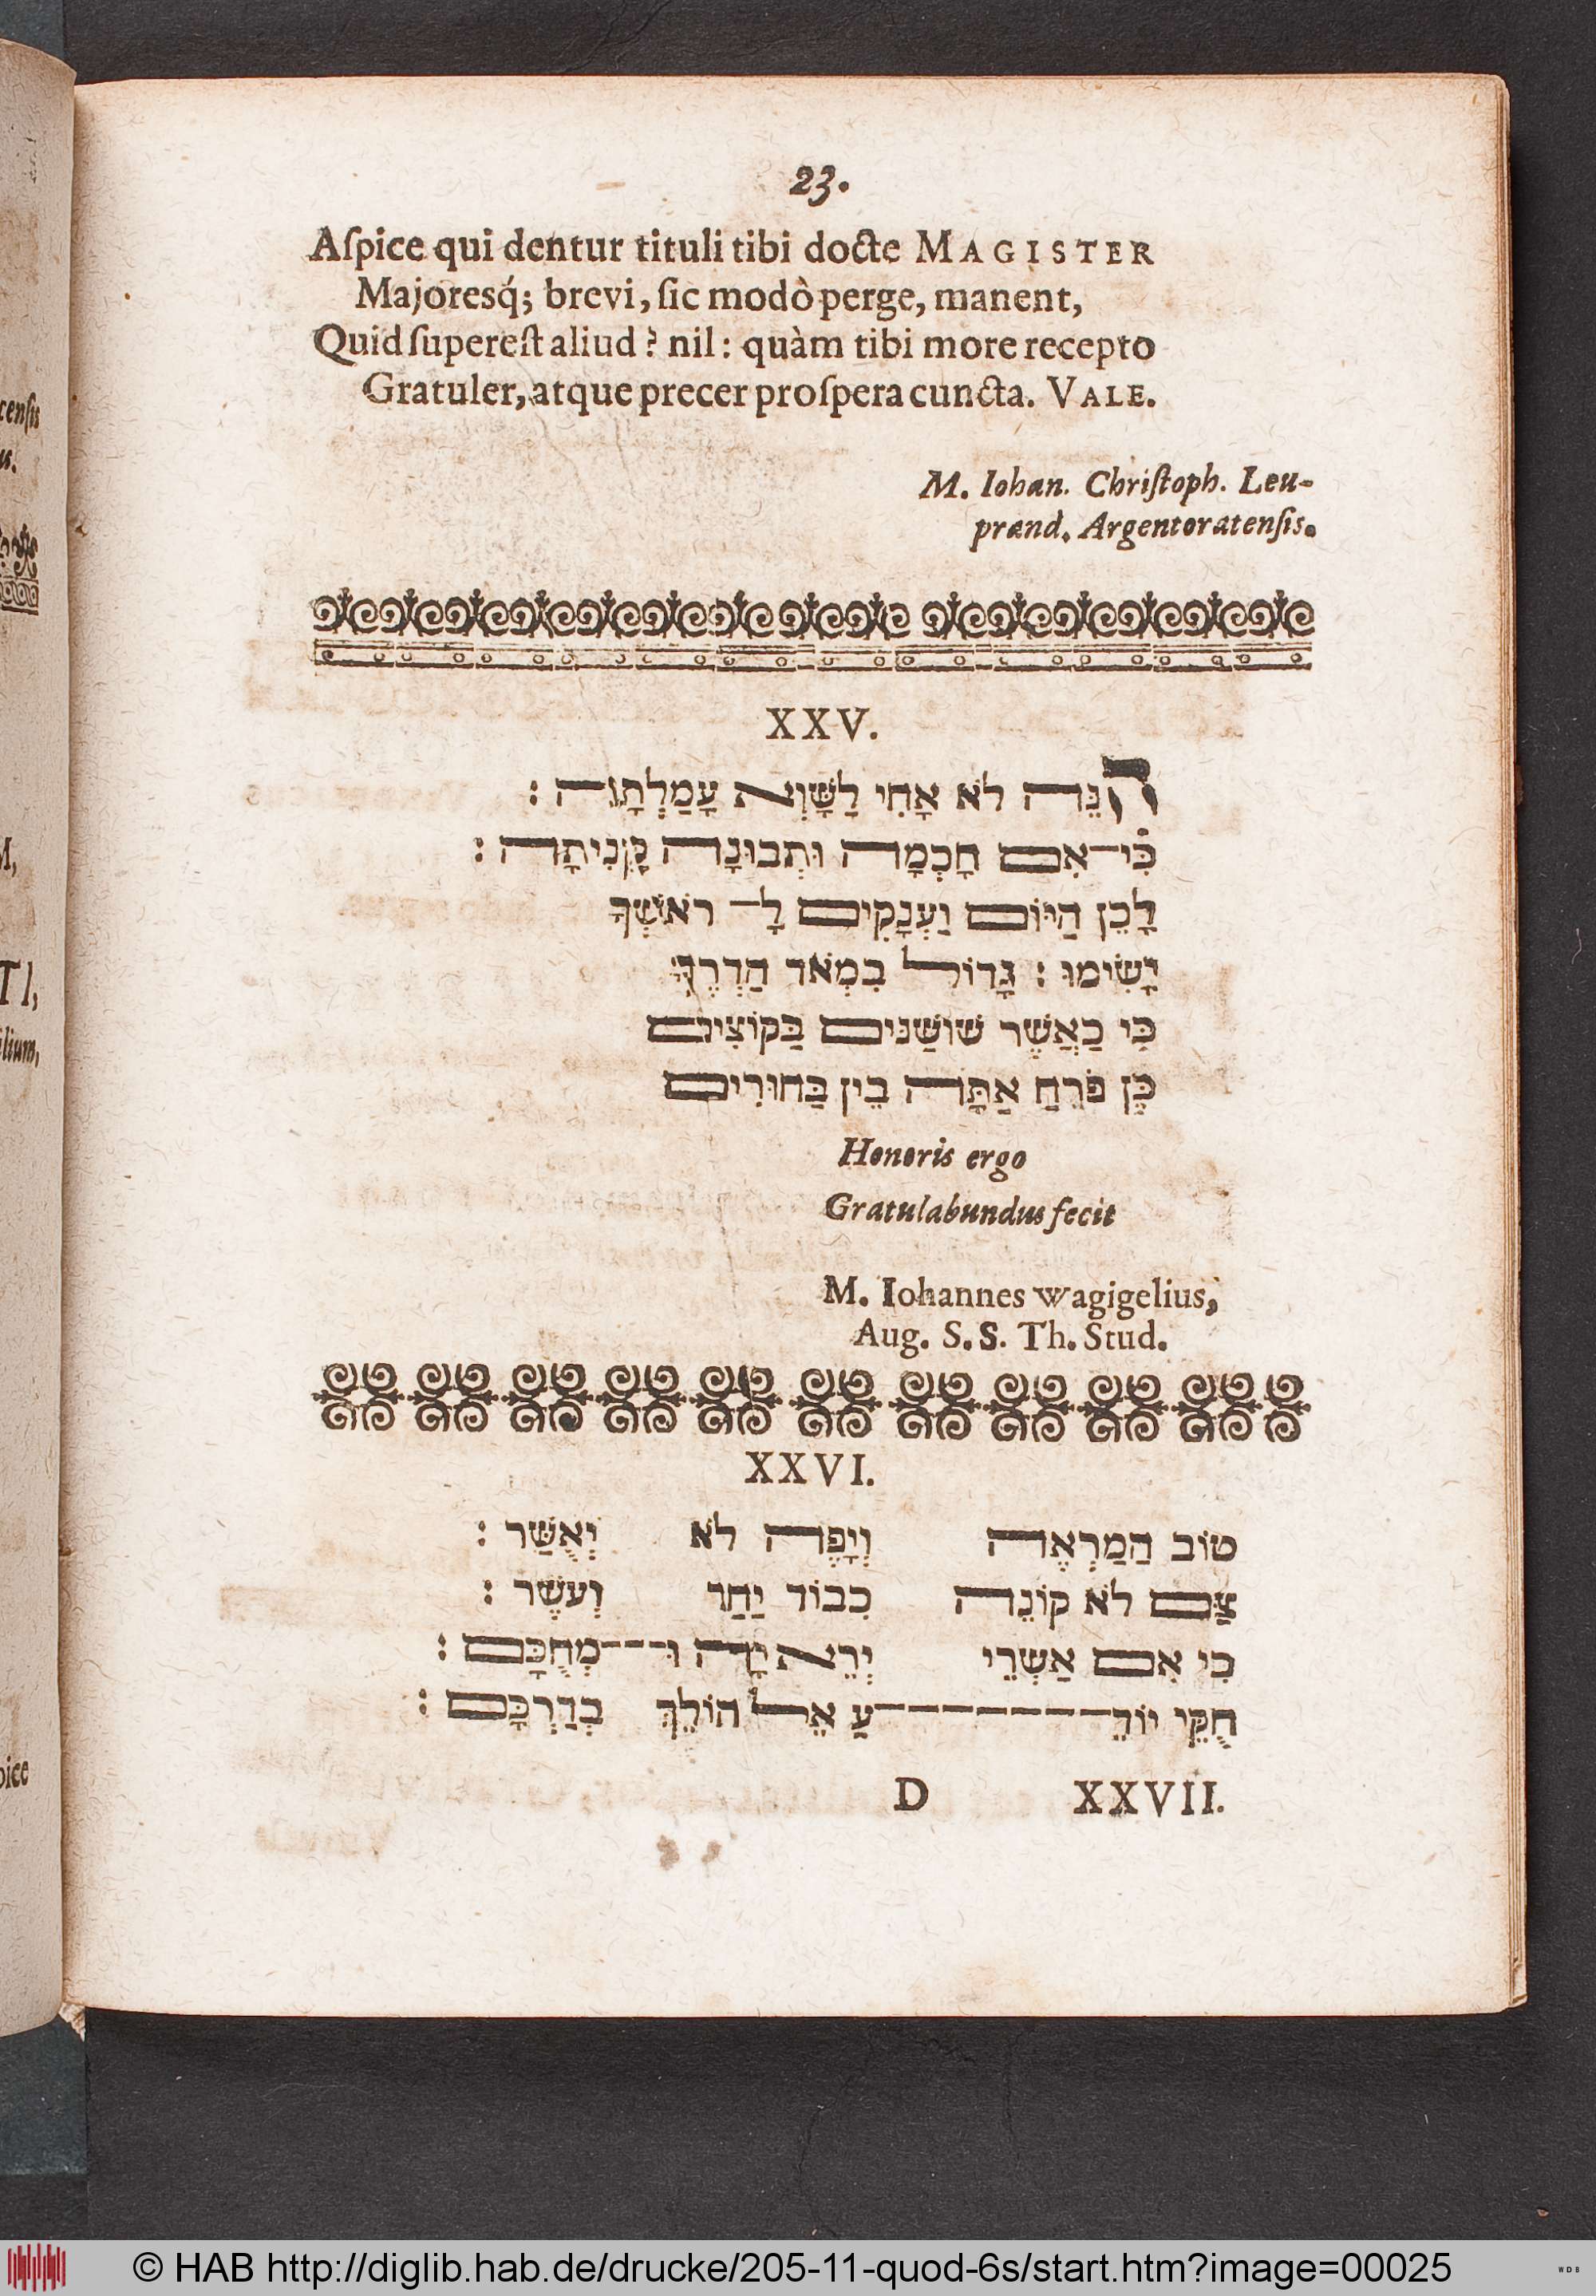 23.
Aſpice qui dentur tituli tibi docte MAGISTER
Majoresq́; brevi, ſic modò perge, manent,
Quid ſupereſt aliud? nil: quàm tibi more recepto
Gratuler, atque precer proſpera cuncta. VALE.
M. Iohan. Chriſtoph. Leu-
prand. Argentoratenſis.
XXV.
הִנֵּה לֹא אָחִי לַשָּׁוְא עָמַלְתָּה :
כִּי־אִם חָכְמָה וּתְבוּנָה קָנִיתָה :
לָכֵן הַיּוֹם וַעְנָקִים לָ־ רֹאשְׁךָ
יָשִׂימוּ : גָּדוֹל בִמְאֹד הַדְרֶךָ
כִּי כַאֲשֶׁר שׁוֹשַׁנִּים בַּקוֹצִים
כֵּן פֹרֵחַ אַתָּה בֵין בַּחוּרִים
Honoris ergo
Gratulabundus fecit
M. Iohannes Wagigelius,
Aug. S. S. Th. Stud.
XXVI.
טוֹב הַמַרְאֶה וְיָפֶה לֹא יְאֻשַּׁר :
צַם לֹא קוֹנֵה כִבוֹד יַחַד וְעֹשֶׁר :
כִי אִם אַשְׁרֵי יְרֵא יָהּ וּ---מְחֻכָּם :
חֻקֵּי יוֹדֵ-------עַ אֵל הוֹלֵךְ בְדַרְכָּם :
D XXVII.
cenſis
us.
M,
TI,
ilium,
pice
© HAB http://diglib.hab.de/drucke/205-11-quod-6s/start.htm?image=00025
WDB